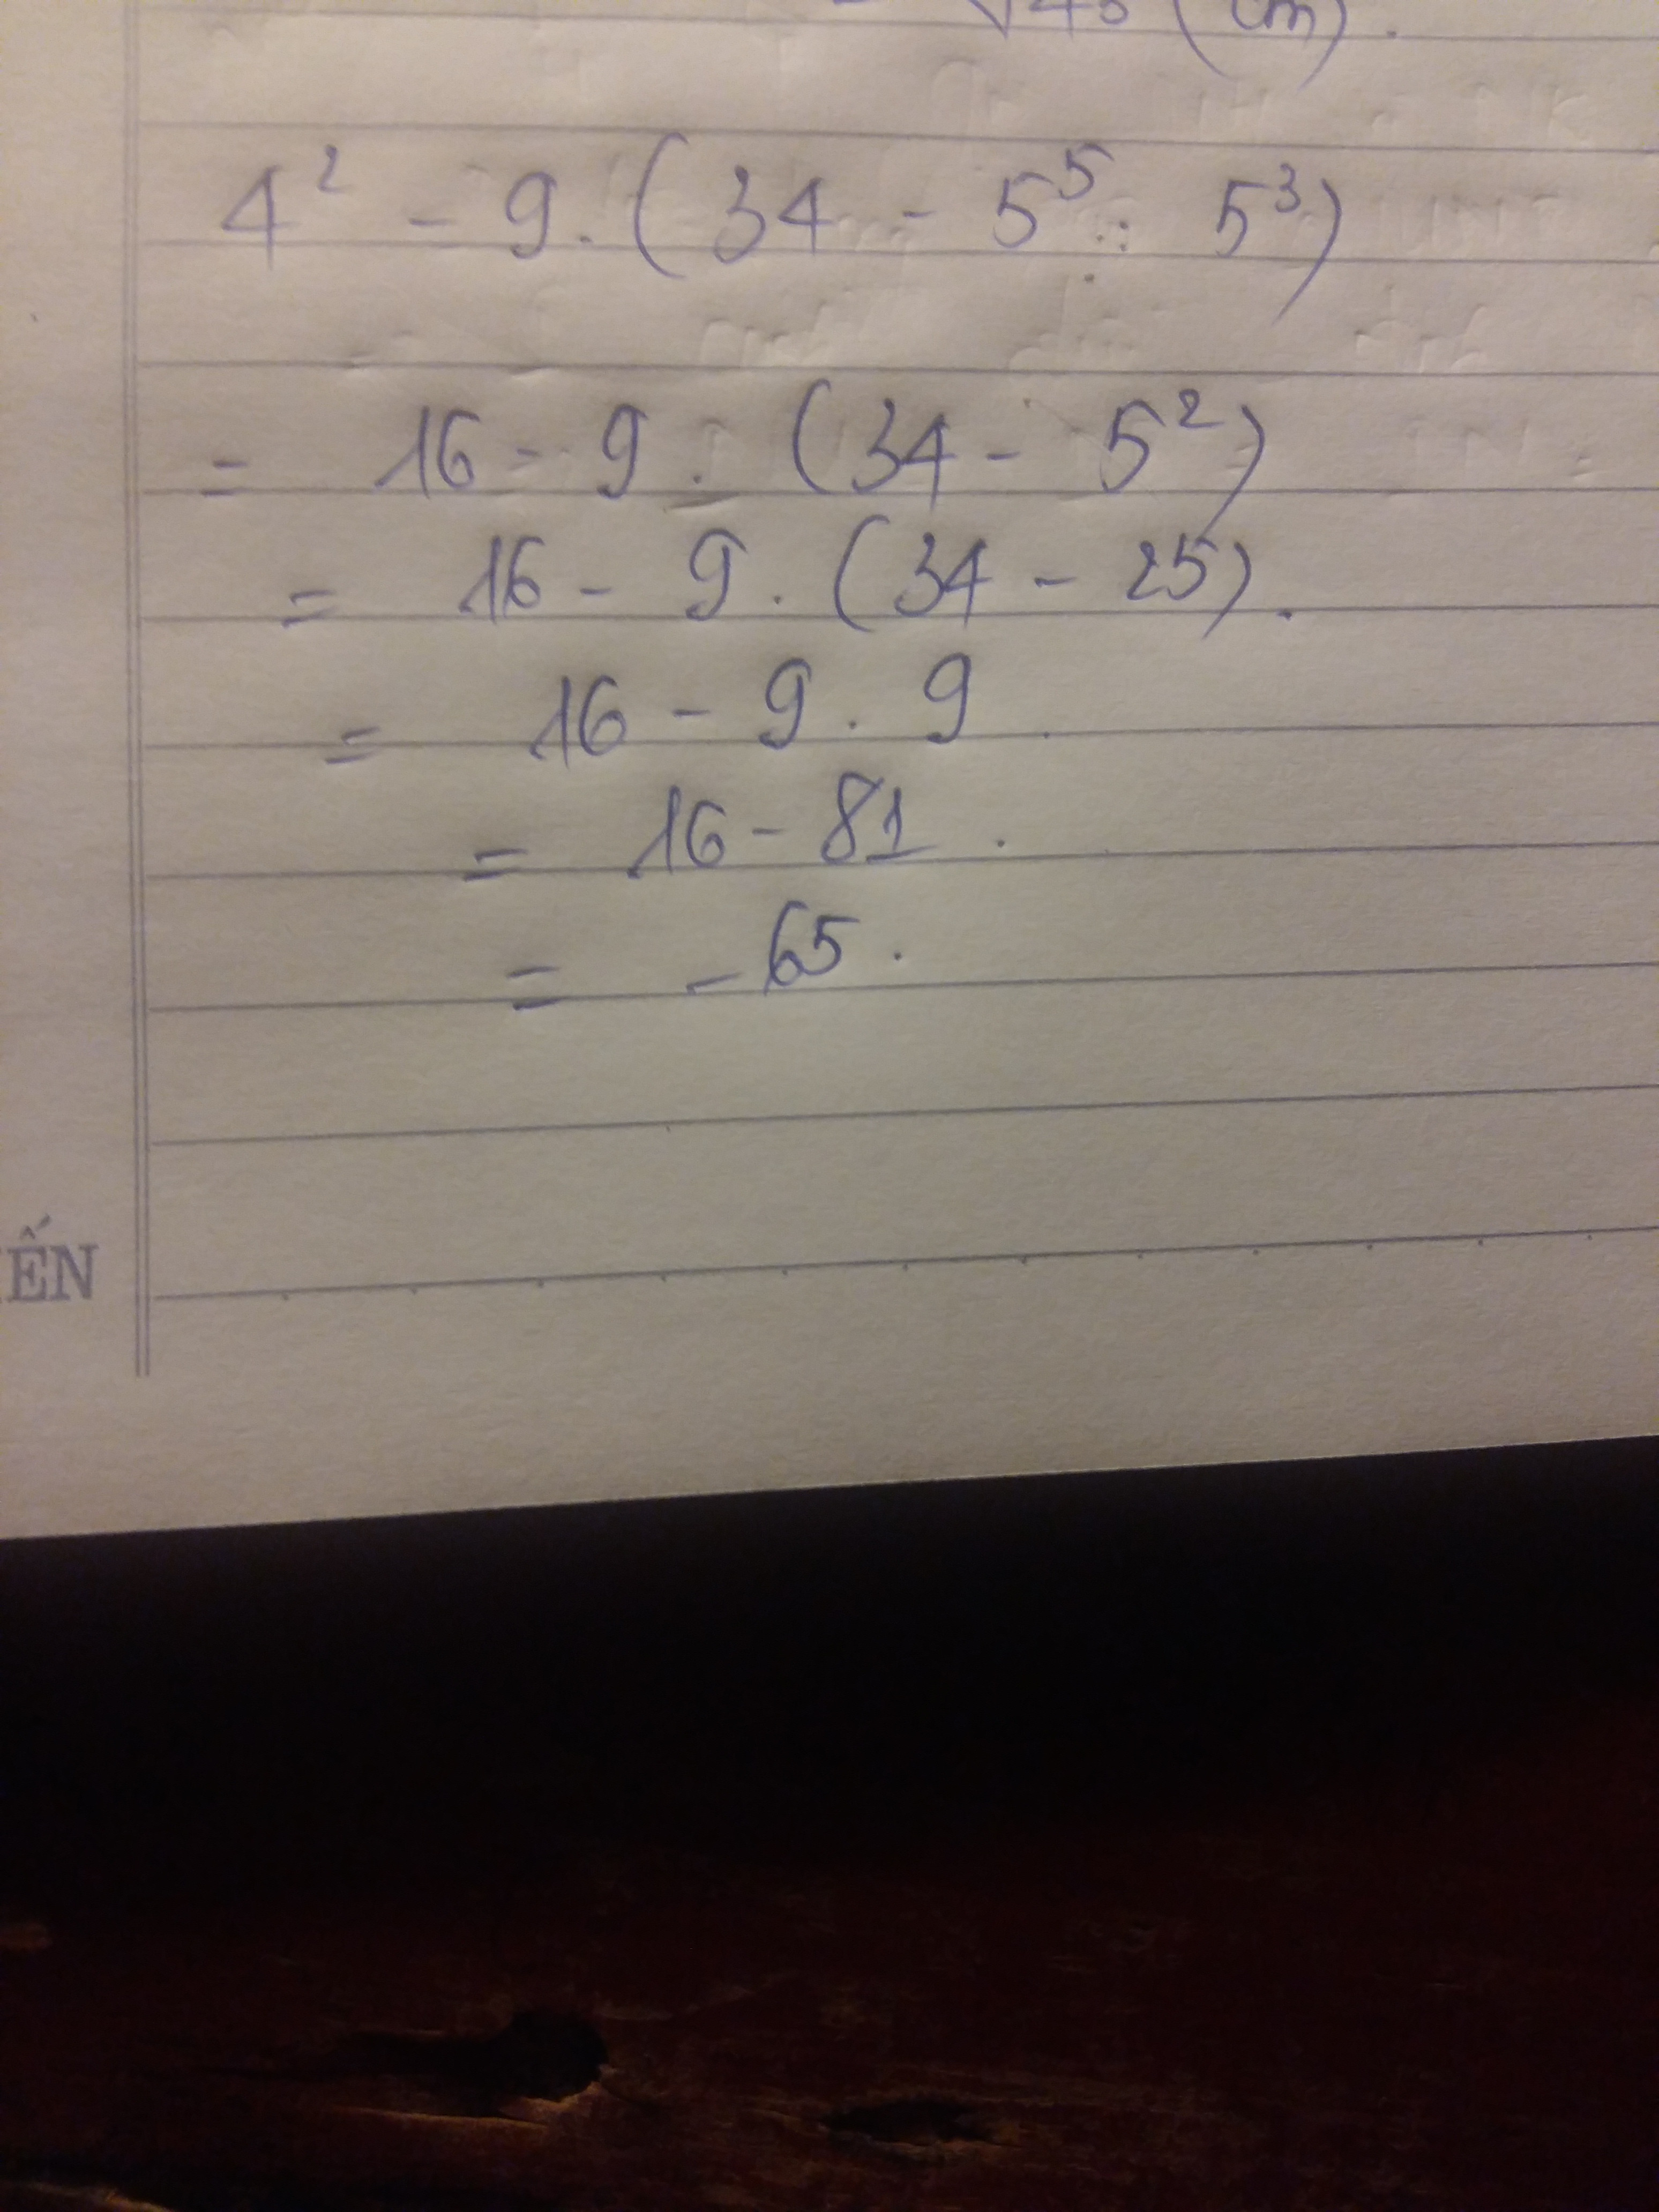 = √45 (cm).
4² - 9. (34 - 5⁵ : 5³)
= 16 - 9 . (34 - 5²)
= 16 - 9 . (34 - 25).
= 16 - 9 . 9 .
= 16 - 81 .
= -65 .
ẾN